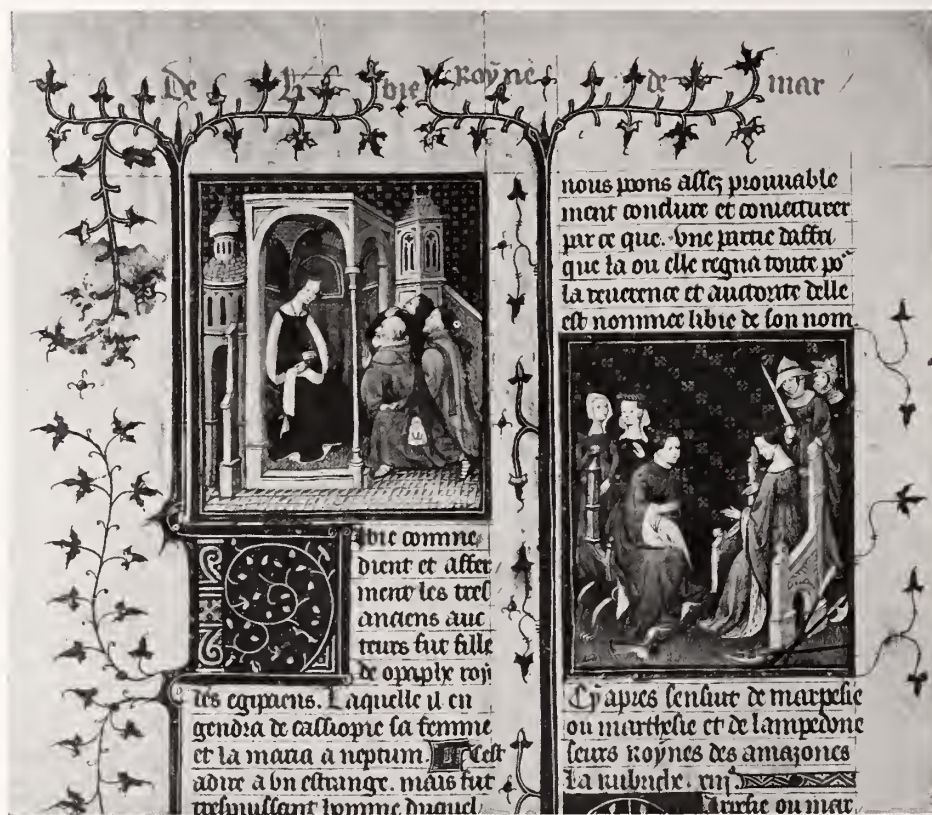 De Libie Royne de mar
Libie comme
dient et affer
ment les tres
anciens auc
teurs fut fille
de opaphe roy
des egipciens. Laquelle il en
gendra de cassiopie sa femme
et la maria a neptum. Cest
adire a vn estrange. mais fut
trespuissant homme duquel
nous poons assez prouuable
ment conclure et coniecturer
par ce que. vne partie daffri
que la ou elle regna toute po
la reuerence et auctorite delle
est nommee libie de son nom
Cy apres sensuit de marpesie
ou marthesie et de lampedone
seurs roynes des amazones
La rubriche. xiij.
Marpesie ou mar